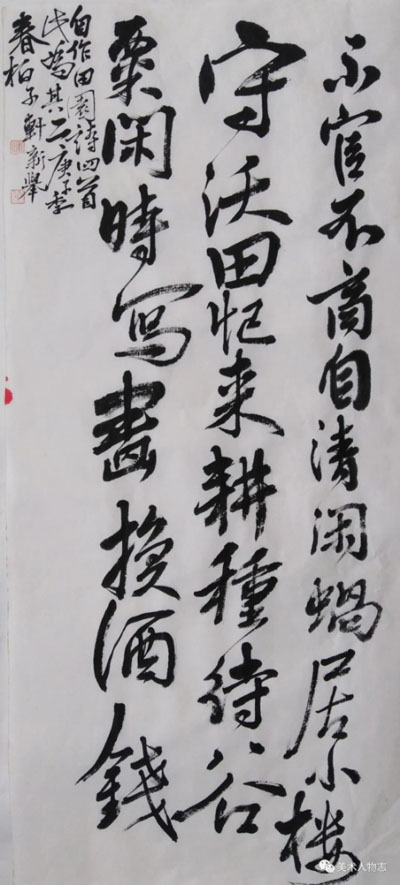 不官不商自清闲蜗居小楼
守沃田忙来耕种待谷
粟闲时写画换酒钱
自作田园诗四首
此为其二庚子孟
春柏子轩新举
美术人物志